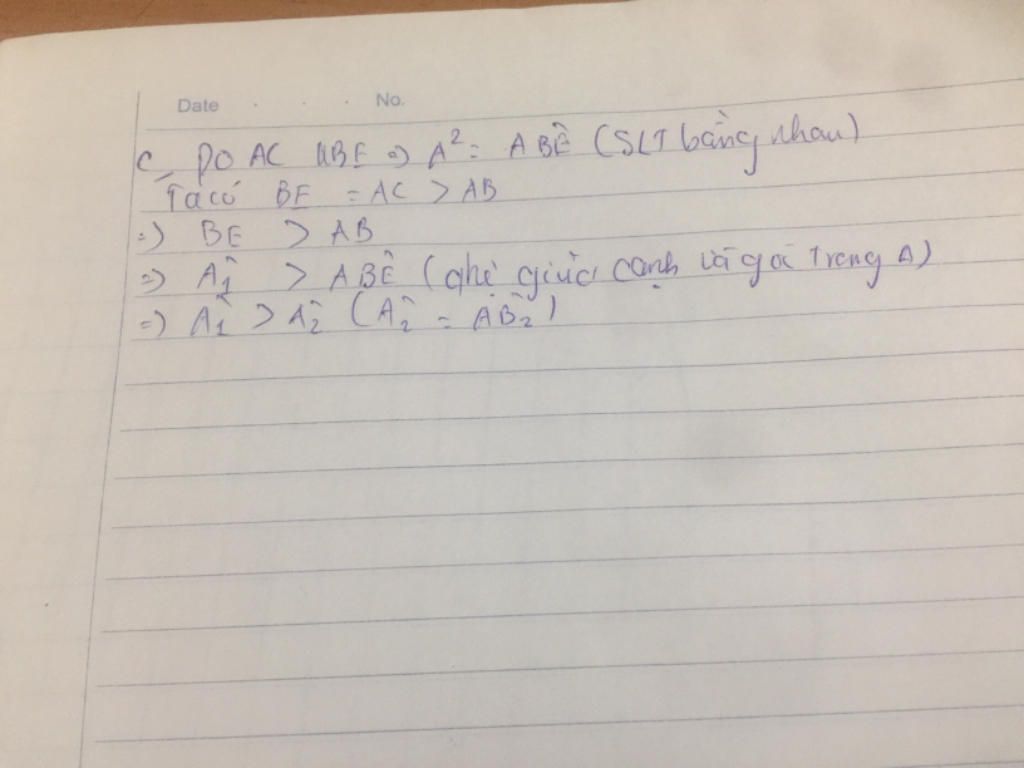 Date . . . No.
C, Do AC // BE => A² = ABÊ (SLT bằng nhau)
Ta có BE = AC > AB
=> BE > AB
=> Â1 > ABÊ (qhệ giữa cạnh và góc trong Δ)
=> Â1 > Â2 (Â2 = AB̂2)